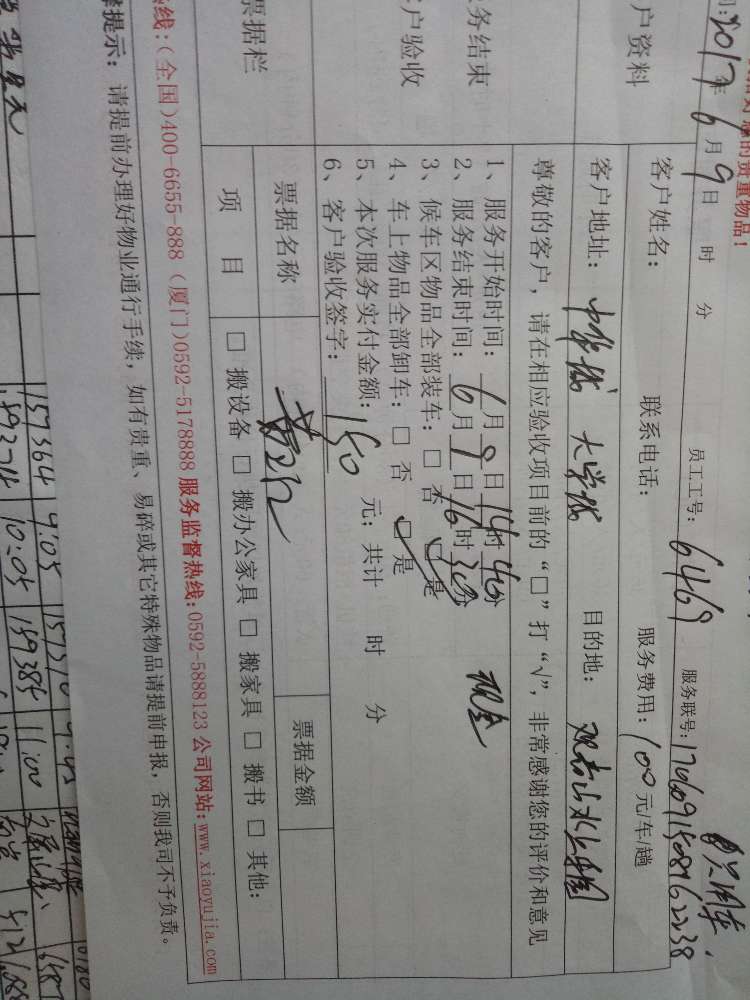 的贵重物品！
2017年6月9日 时 分 员工工号：6469 服务联号：
户资料
客户姓名： 联系电话： 服务费用：100元/车/趟
客户地址： 中华城 大学城 目的地：
尊敬的客户，请在相应验收项目前的“□”打“√”，非常感谢您的评价和意见
务结束
户验收
1、服务开始时间：6月9日14时40分
2、服务结束时间：6月9日16时30分 现金
3、候车区物品全部装车：□否 □是
4、车上物品全部卸车：□否 □是
5、本次服务实付金额：150元；共计 时 分
6、客户验收签字：
票据栏
票据名称 票据金额
项 目 □搬设备 □搬办公家具 □搬家具 □搬书 □其他:
热线:(全国)400-6655-888 (厦门)0592-5178888 服务监督热线:0592-5888123 公司网站:www.xiaoyujia.com
提示：请提前办理好物业通行手续，如有贵重、易碎或其它特殊物品请提前申报，否则我司不予负责。
157364 9:05
10:05 159385 11:00